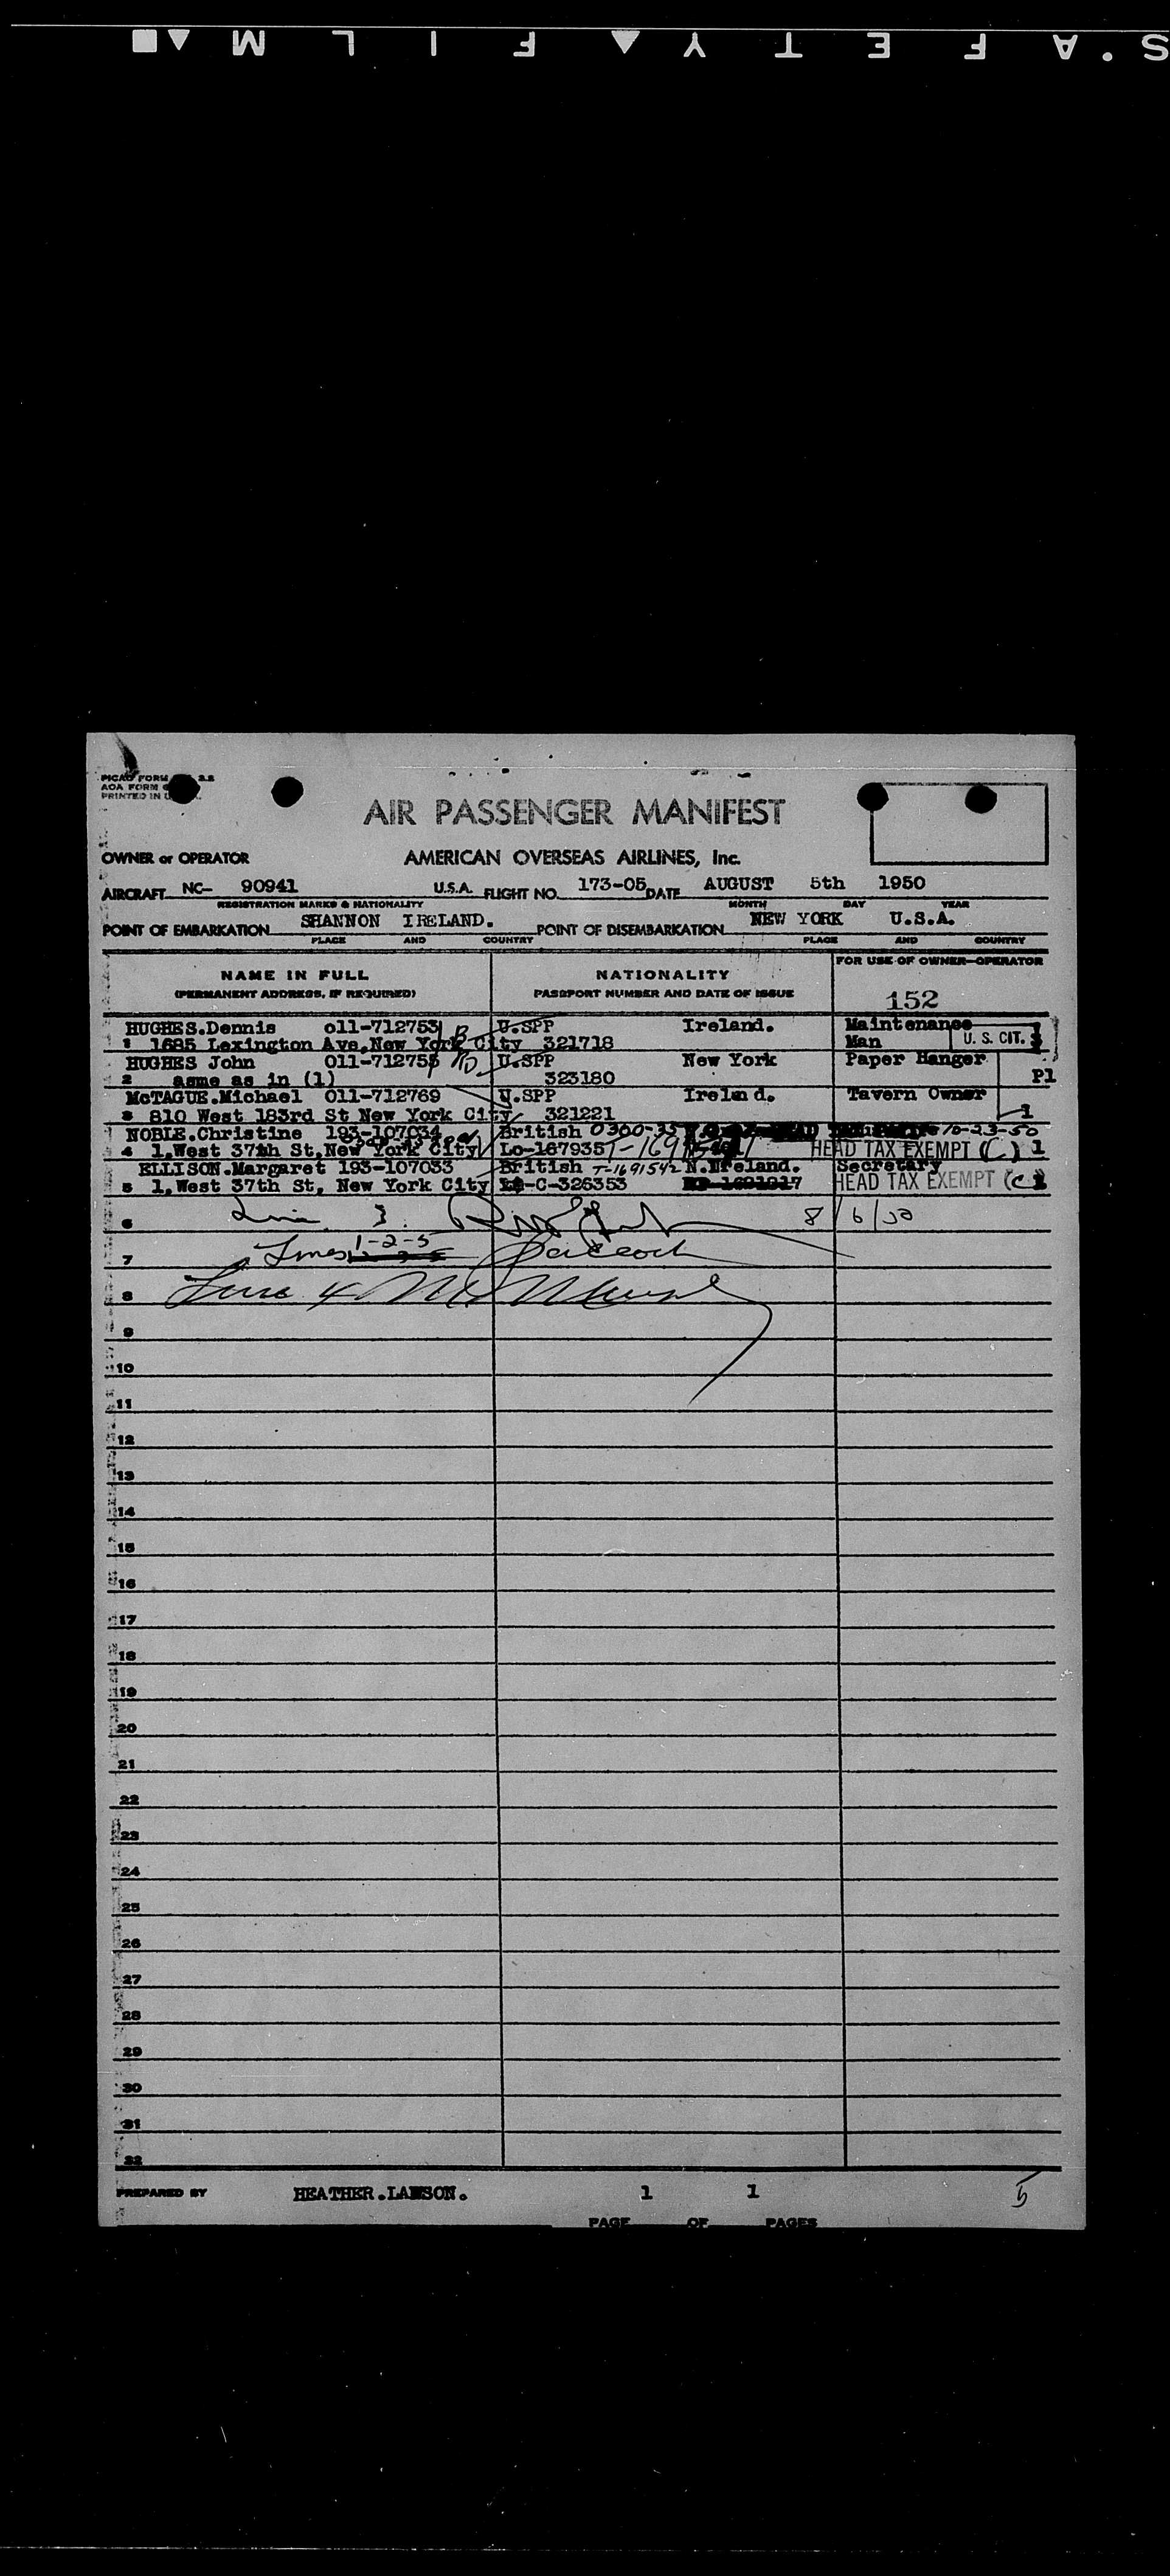 S.AFETY FILM
PICAO FORM 2.2
AOA FORM
PRINTED IN U.
AIR PASSENGER MANIFEST
OWNER or OPERATOR AMERICAN OVERSEAS AIRLINES, Inc.
AIRCRAFT NC- 90941 U.S.A. FLIGHT NO. 173-05 DATE AUGUST 5th 1950
REGISTRATION MARKS & NATIONALITY MONTH DAY YEAR
POINT OF EMBARKATION SHANNON IRELAND. POINT OF DISEMBARKATION NEW YORK U.S.A.
PLACE AND COUNTRY PLACE AND COUNTRY
NAME IN FULL NATIONALITY FOR USE OF OWNER-OPERATOR
(PERMANENT ADDRESS, IF REQUIRED) PASSPORT NUMBER AND DATE OF ISSUE 152
HUGHES.Dennis o11-712753 U.SPP Ireland. Maintenance
1 1685 Lexington Ave,New York City 321718 Man U. S. CIT.
HUGHES John 011-712755 U.SPP New York Paper Hanger
2 asme as in (1) 323180 P1
McTAGUE.Michael 011-712769 U.SPP Ireland. Tavern Owner
3 810 West 183rd St New York City 321221 1
NOBLE.Christine 193-107034 British 0300- 10-23-50
4 1,West 37th St,New York City Lo-167935 HEAD TAX EXEMPT (C) 1
ELLISON.Margaret 193-107033 British T-1691542 N.Ireland. Secretary
5 1,West 37th St, New York City -C-326353 HEAD TAX EXEMPT (C)
6 Line 3. 8/6/50
7 Lines 1-2-5 Peacock
8 Line 4
9
10
11
12
13
14
15
16
17
18
19
20
21
22
23
24
25
26
27
28
29
30
31
32
PREPARED BY HEATHER.LAWSON. 1 1 5
PAGE OF PAGES